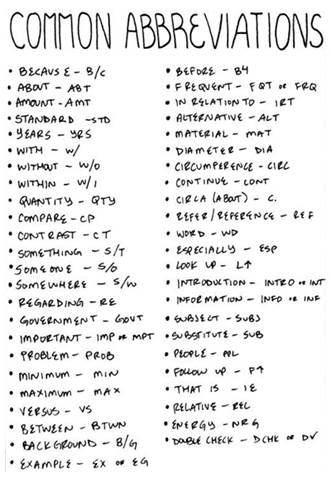 COMMON ABBREVIATIONS
• BECAUSE - B/C
• ABOUT - ABT
• AMOUNT - AMT
• STANDARD - STD
• YEARS - YRS
• WITH - W/
• WITHOUT - W/O
• WITHIN - W/I
• QUANTITY - QTY
• COMPARE - CP
• CONTRAST - CT
• SOMETHING - S/T
• SOMEONE - S/O
• SOMEWHERE - S/W
• REGARDING - RE
• GOVERNMENT - GOVT
• IMPORTANT - IMP OR MPT
• PROBLEM - PROB
• MINIMUM - MIN
• MAXIMUM - MAX
• VERSUS - VS
• BETWEEN - BTWN
• BACKGROUND - B/G
• EXAMPLE - EX OR EG
• BEFORE - B4
• FREQUENT - FQT OR FRQ
• IN RELATION TO - IRT
• ALTERNATIVE - ALT
• MATERIAL - MAT
• DIAMETER - DIA
• CIRCUMFERENCE - CIRC
• CONTINUE - CONT
• CIRCA (ABOUT) - C.
• REFER/REFERENCE - REF
• WORD - WD
• ESPECIALLY - ESP
• LOOK UP - L↑
• INTRODUCTION - INTRO OR INT
• INFORMATION - INFO OR INF
• SUBJECT - SUBJ
• SUBSTITUTE - SUB
• PEOPLE - PPL
• FOLLOW UP - F↑
• THAT IS - IE
• RELATIVE - REL
• ENERGY - NRG
• DOUBLE CHECK - DCHK OR D√